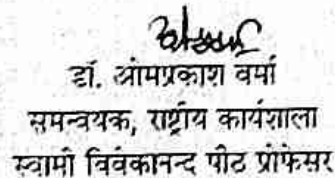 डॉ. ओमप्रकाश वर्मा
समन्वयक, राष्ट्रीय कार्यशाला
स्वामी विवेकानन्द पीठ प्रोफेसर